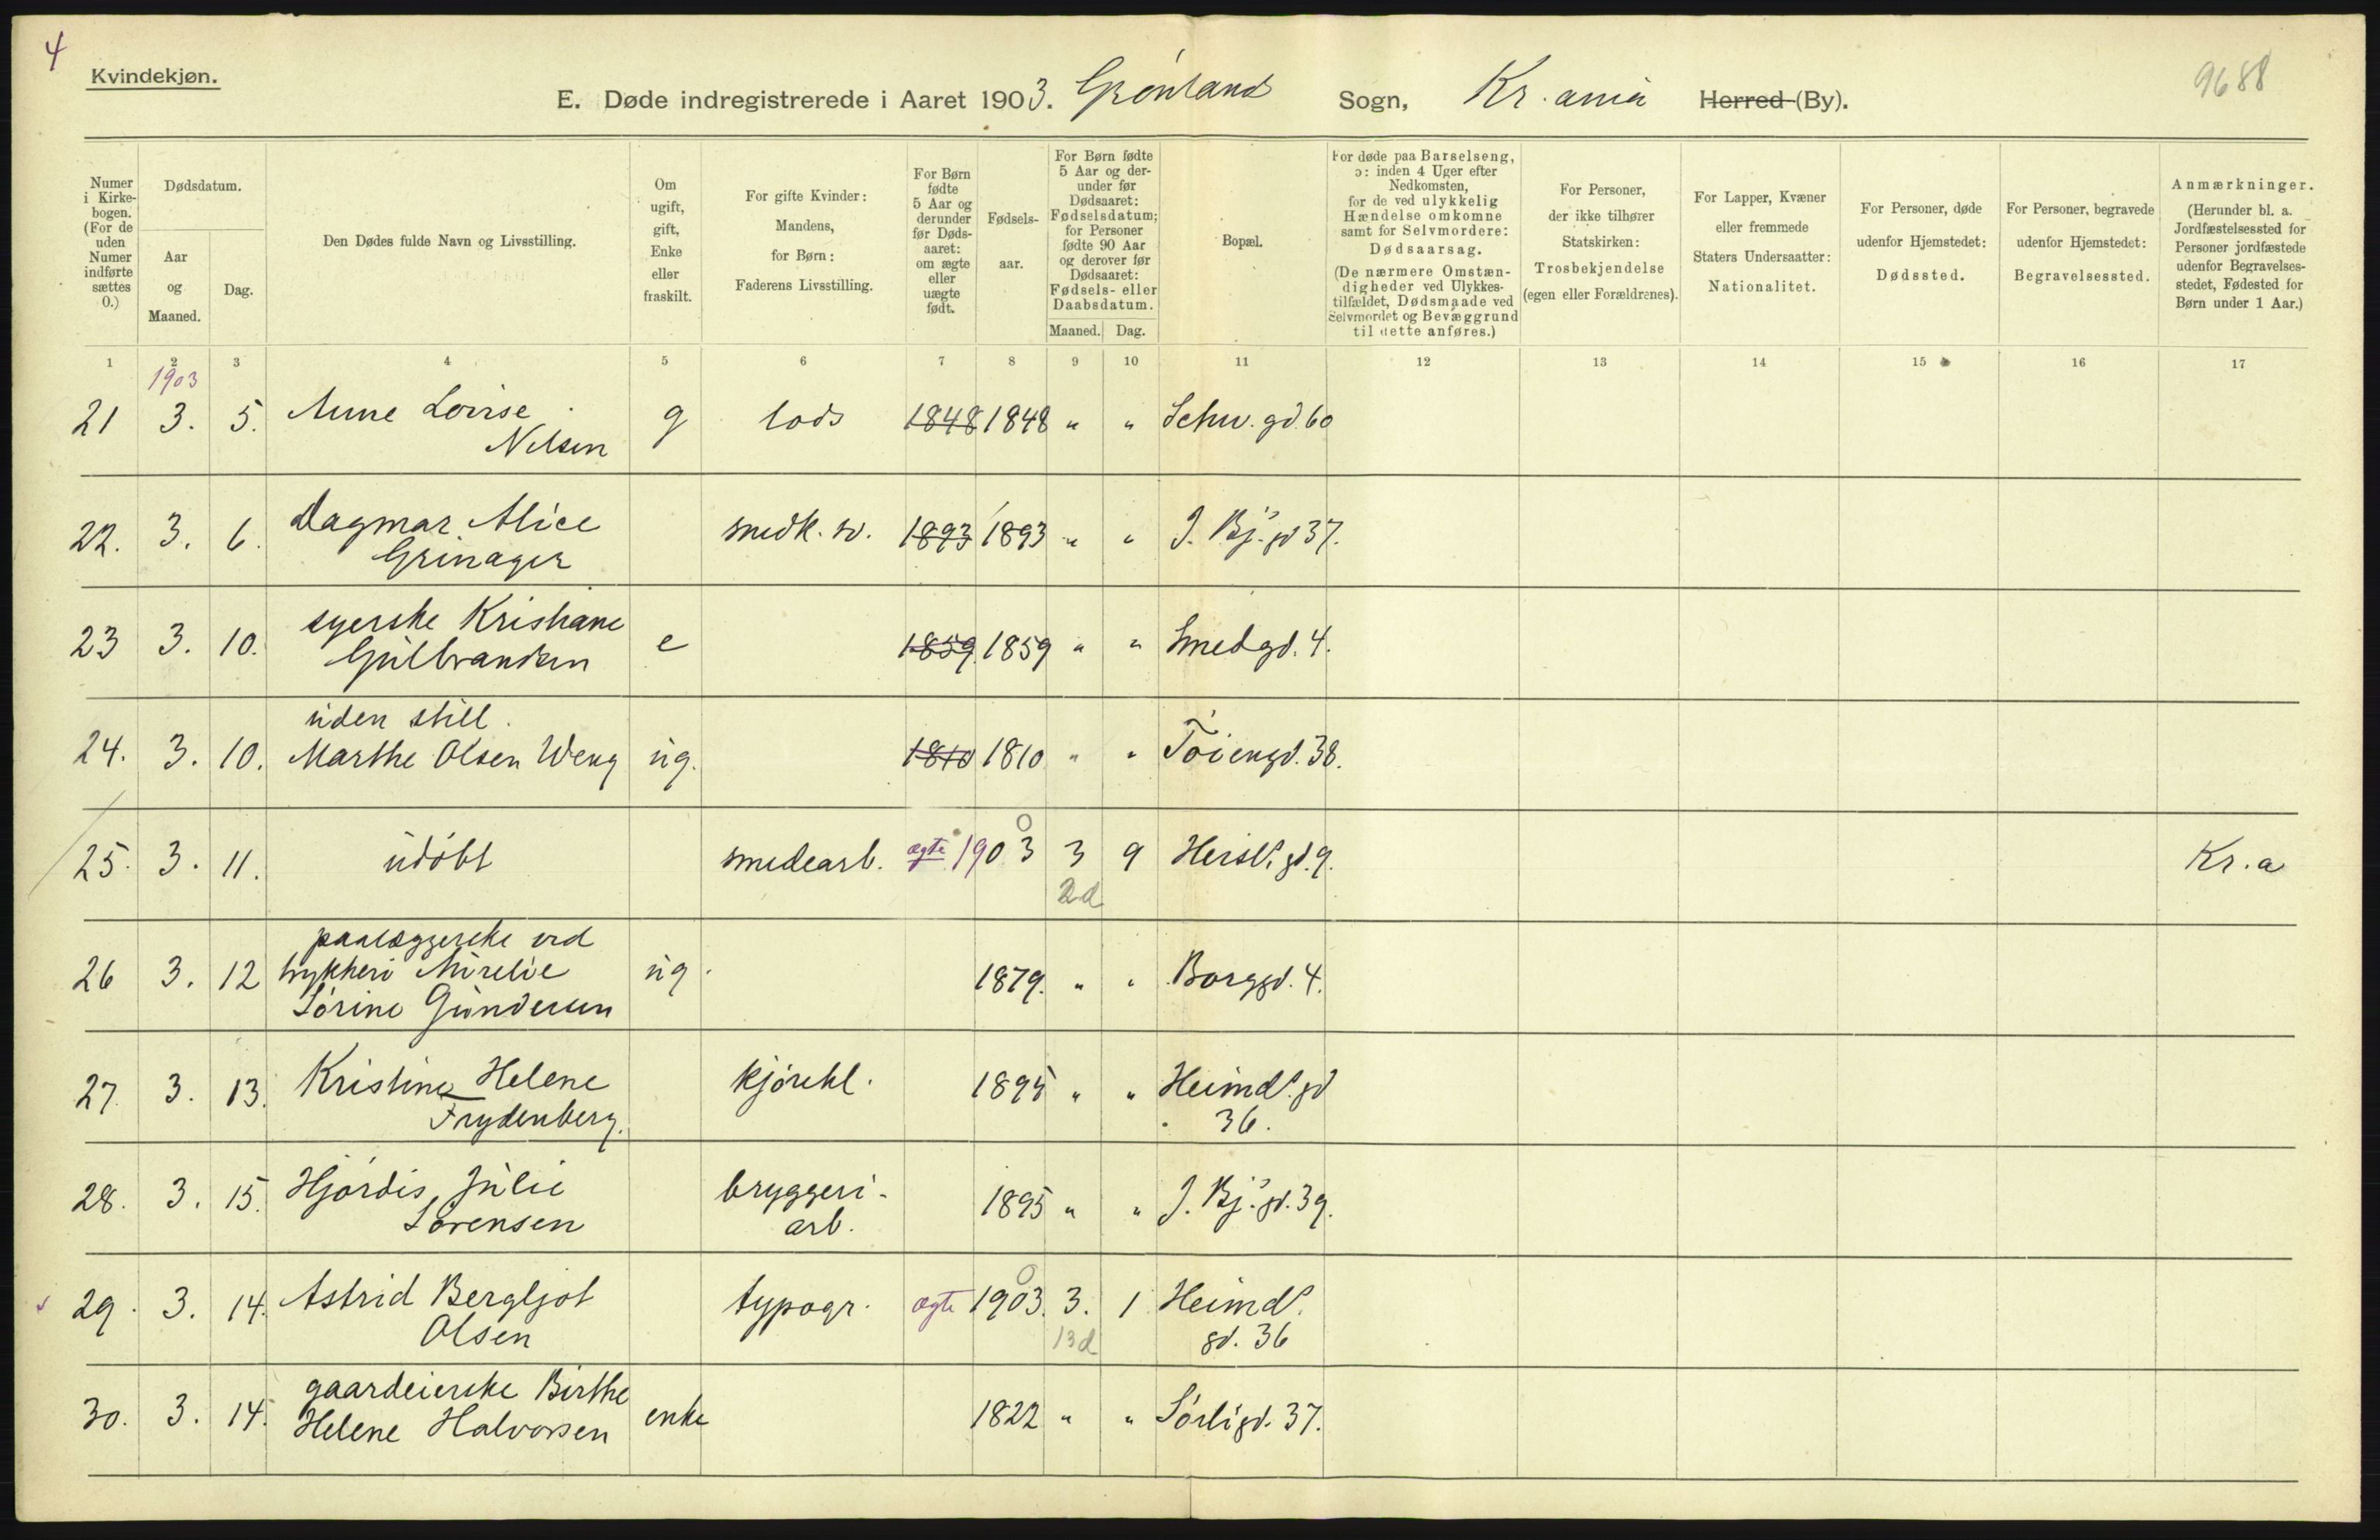 4
Kvindekjøn.
E. Døde indregistrerede i Aaret 1903. Grønland Sogn, Kr.ania Herred (By).
9688
Numer i Kirkebogen. (For de uden Numer indførte sættes 0.)
Dødsdatum.
Aar og Maaned.
Dag.
Den Dødes fulde Navn og Livsstilling.
Om ugift, gift, Enke eller fraskilt.
For gifte Kvinder: Mandens, for Børn: Faderens Livsstilling.
For Børn fødte 5 Aar og derunder før Dødsaaret: om ægte eller uægte født.
Fødselsaar.
For Børn fødte 5 Aar og derunder før Dødsaaret: Fødselsdatum; for Personer fødte 90 Aar og derover før Dødsaaret: Fødsels- eller Daabsdatum.
Maaned. Dag.
Bopæl.
For døde paa Barselseng, ɔ: inden 4 Uger efter Nedkomsten, for de ved ulykkelig Hændelse omkomne samt for Selvmordere: Dødsaarsag. (De nærmere Omstændigheder ved Ulykkestilfældet, Dødsmaade ved Selvmordet og Bevæggrund til dette anføres.)
For Personer, der ikke tilhører Statskirken: Trosbekjendelse (egen eller Forældrenes).
For Lapper, Kvæner eller fremmede Staters Undersaatter: Nationalitet.
For Personer, døde udenfor Hjemstedet: Dødssted.
For Personer, begravede udenfor Hjemstedet: Begravelsessted.
Anmærkninger. (Herunder bl. a. Jordfæstelsessted for Personer jordfæstede udenfor Begravelsesstedet, Fødested for Børn under 1 Aar.)
1 2 3 4 5 6 7 8 9 10 11 12 13 14 15 16 17
1903
21 3. 5. Anne Lovise g lods 1848 1848 " " Schw. gd. 60
Nilsen
22. 3. 6. Dagmar Alice snedk. sv. 1893 1893 " " J. Bj. gd 37.
Grinager
23 3. 10. syerske Kristiane e 1859 1859 " " Smedgd. 4.
Gulbrandsen
uden still.
24. 3. 10. Marthe Olsen Weng ug. 1810 1810 " " Tøiengd. 38.
25. 3. 11. udøbt smedearb. ægte 1903 0 3 9 Hersl. gd. 9. Kr.a
2d
paalæggerske ved
26 3. 12 trykkeri Aurelie ug. 1879. " " Borggd. 4.
Sørine Gundersen
27. 3. 13. Kristine Helene kjørekl. 1895 " " Heimd. gd
Frydenberg. 36.
28. 3. 15. Hjørdis Julie bryggeri- 1895 " " J. Bj. gd. 39.
Sørensen arb.
29. 3. 14. Astrid Bergljot typogr. ægte 1903. 0 3. 1 Heimd.
Olsen 13d gd. 36
gaardeierske Birthe
30. 3. 14. Helene Halvorsen enke 1822 " " Sørligd. 37.